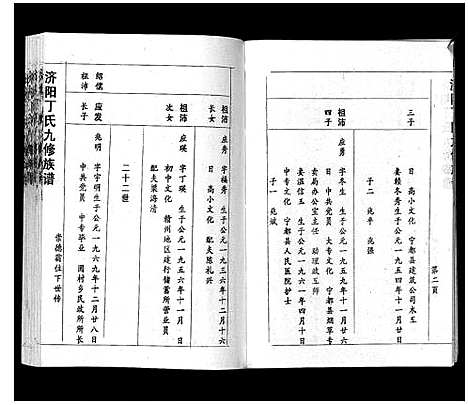 第二页
三子
日 高小文化 宁都县建筑公司木工
娄赖冬秀生于公元一九五四年十一月
子二 兆平 兆强
祖沛
四子
应勇 字冬生 生于公元一九五九年十一月
日 中共党员 大专文化 宁都县烟草专
卖局办公室主任 助理政工师
娄温信玉 生于公元一九六一年 月 日
中专文化 宁都县人民医院护士
子一 兆斌
祖沛
长女
应秀 字福秀 生于公元一九三六年十二月十六
日 高小文化 配夫陈礼兴
祖沛
次女
应瑛 字丁瑛 生于公元一九五六年十一月 日
初中文化 赣州地区建行储蓄所营业员
配夫策海清
二十二世
绍儒
祖沛
应发
长子
兆明 字宇明生于公元一九六九年十二月廿八日
中共党员 中专毕业 固村乡民政所所长
崇德翁位下世传
济阳丁氏九修族谱